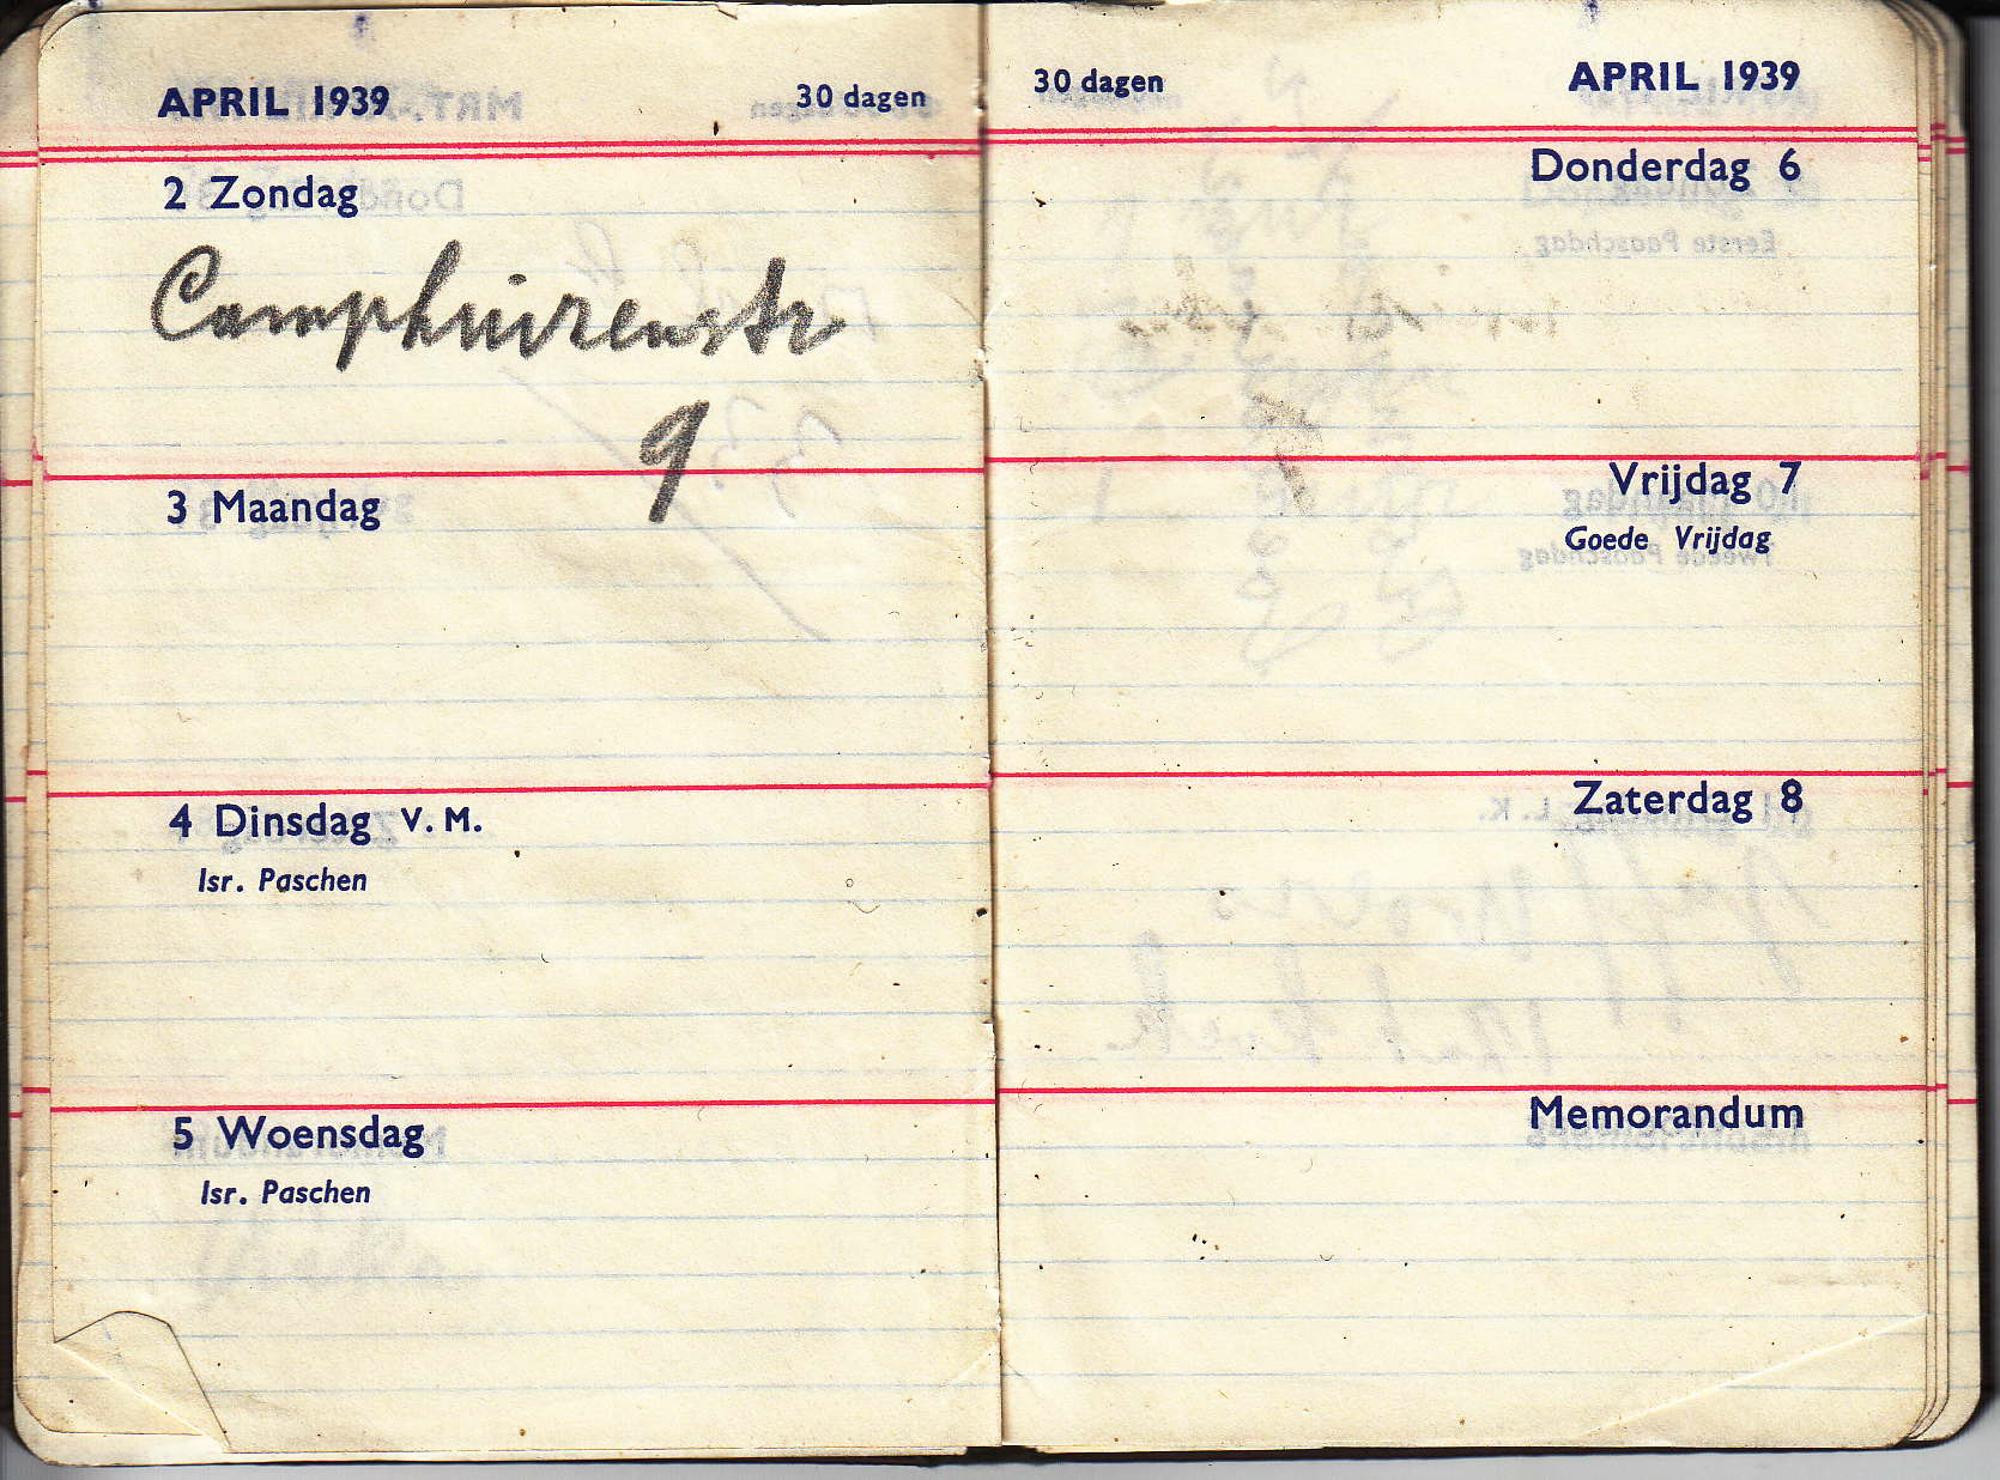 APRIL 1939 30 dagen
2 Zondag
Camphuizenstr
9
3 Maandag
4 Dinsdag V. M.
Isr. Paschen
5 Woensdag
Isr. Paschen
30 dagen APRIL 1939
Donderdag 6
Vrijdag 7
Goede Vrijdag
Zaterdag 8
Memorandum